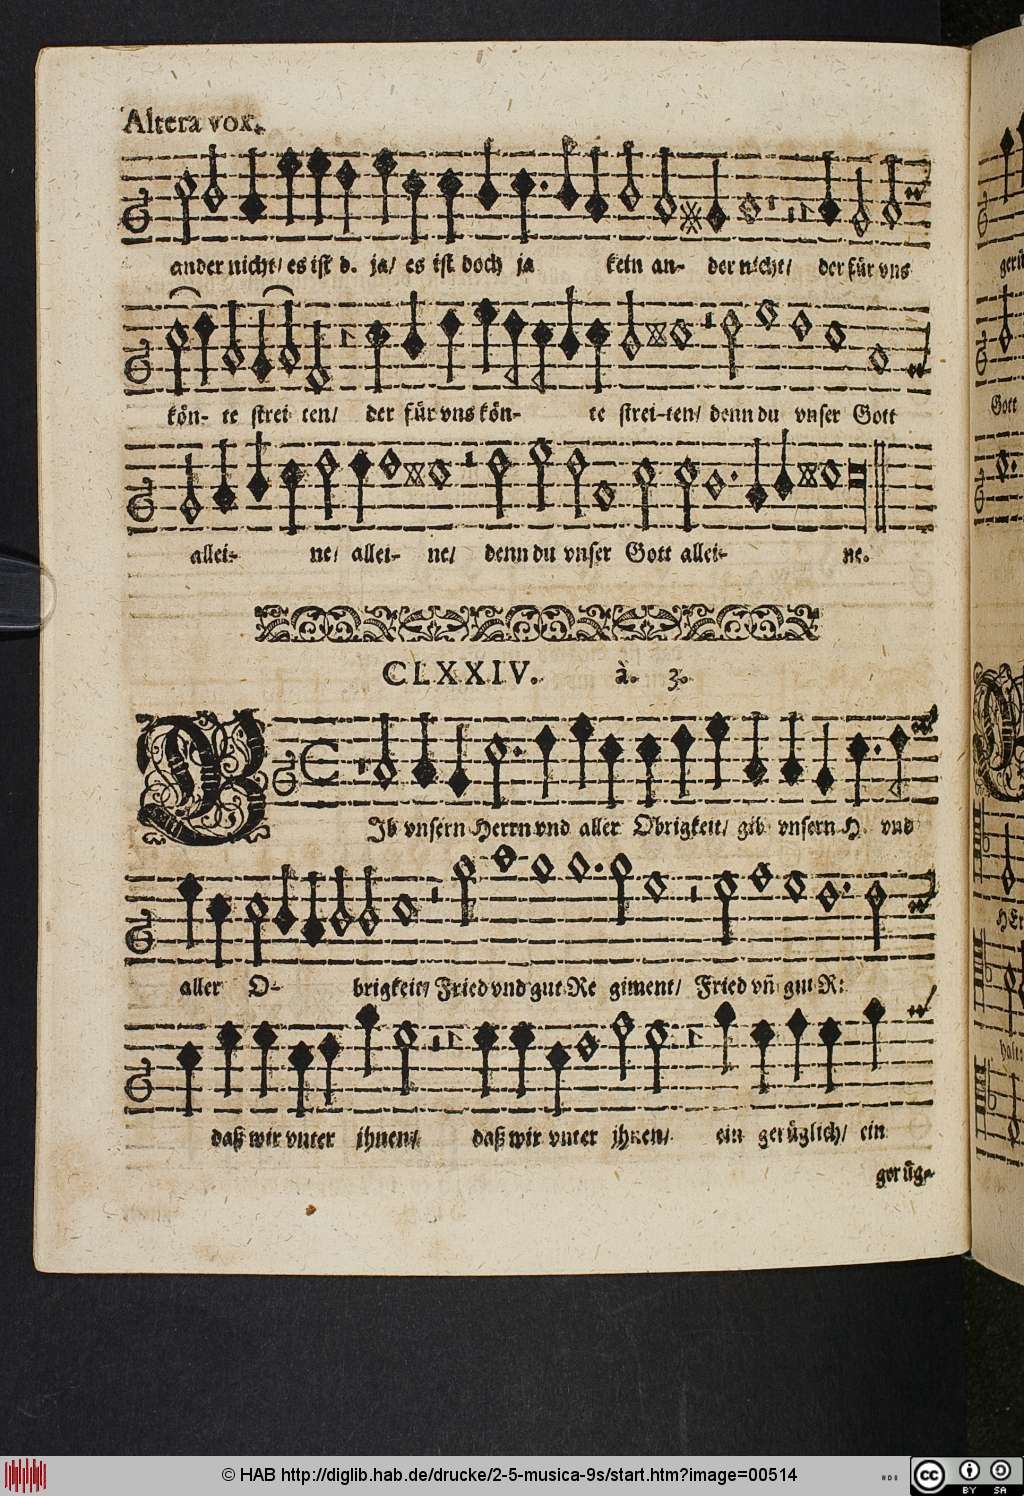 Altera vox.
ander nicht/ es ist d. ja/ es ist doch ja kein an- der nicht/ der für vns
kön- te strei ten/ der für vns kön- te strei-ten/ denn du vnser Gott
allei- ne/ allei- ne/ denn du vnser Gott allei- ne.
CLXXIV. à. 3.
GIb vnsern Herrn vnd aller Obrigkeit/ gib vnsern H. vnd
aller O- brigkeit/ Fried vnd gut Re giment/ Fried vñ gut R:
daß wir vnter jhnen/ daß wir vnter jhnen/ ein gerüglich/ ein
gerüg-
gerü
Gott
HEr
halt:
© HAB http://diglib.hab.de/drucke/2-5-musica-9s/start.htm?image=00514
cc BY SA